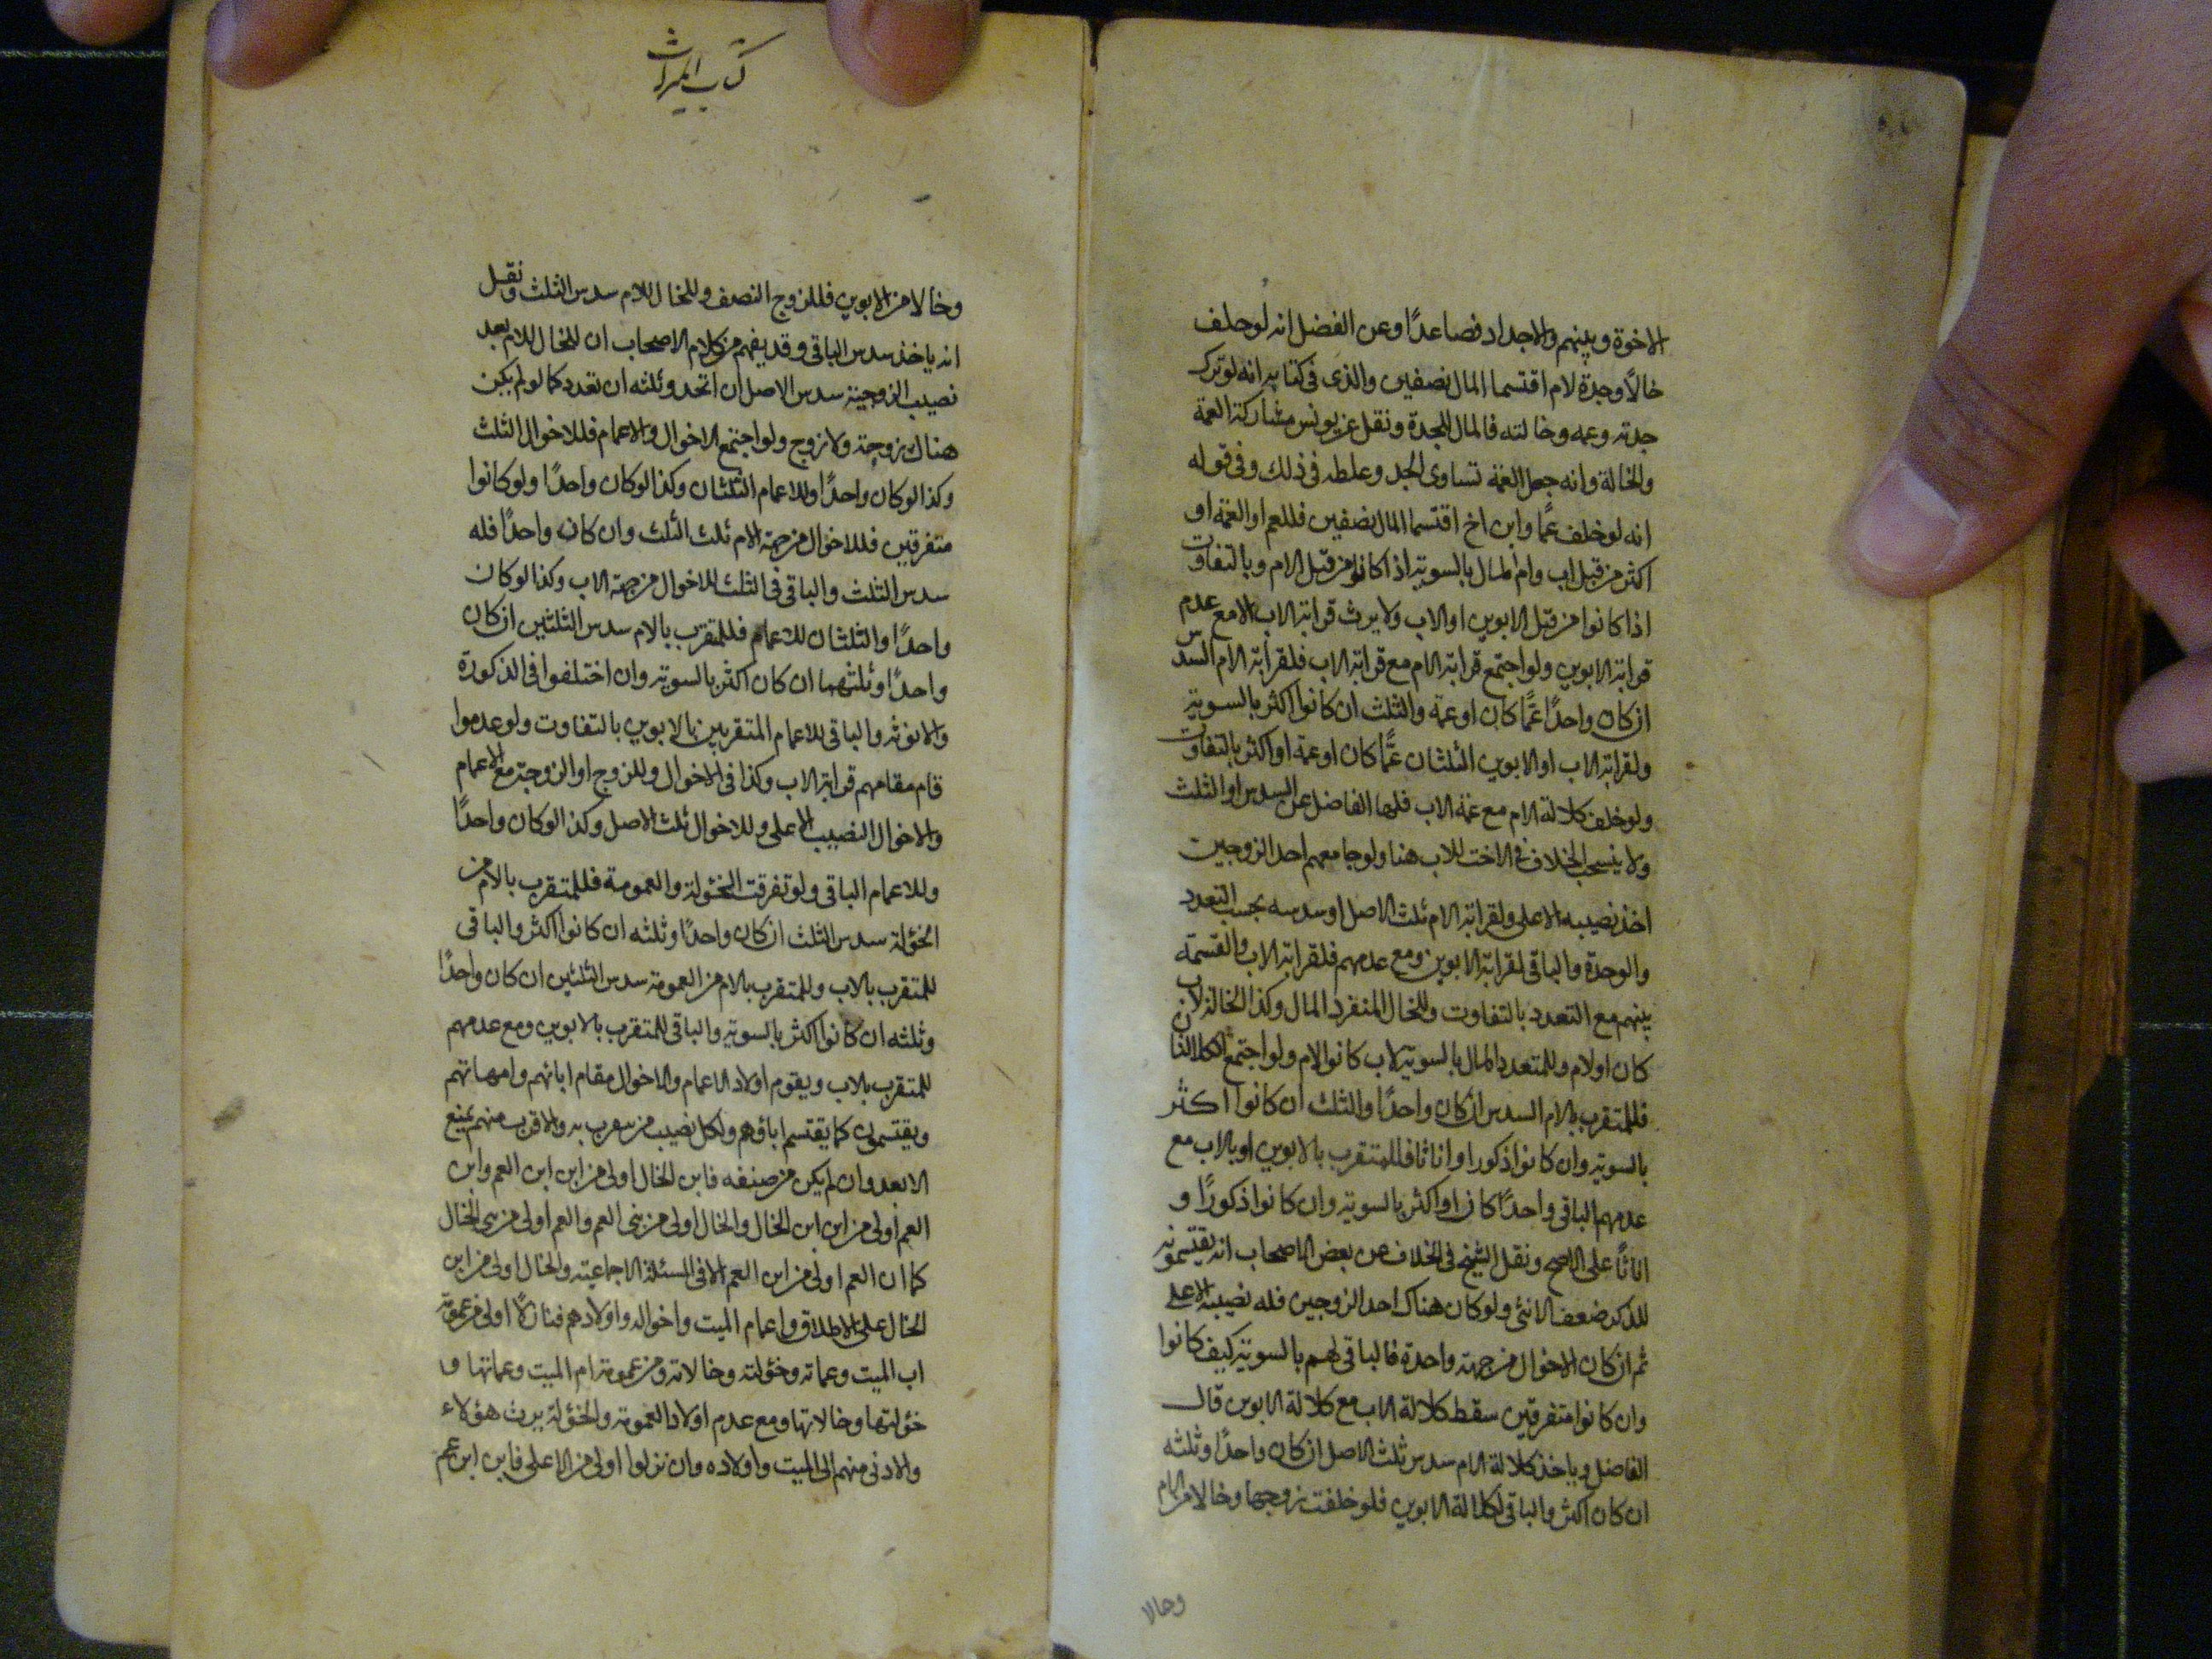 الاخوة وبينهم والاجداد فصاعدًا وعن الفضل انه لو خلف
خالًا وجدة لام اقتسما المال نصفين والذى فى كتابه انه لو ترك
جدته وعمه وخالته فالمال للجدة ونقل عن يونس مشاركة العمة
والخالة وانه جعل العمة تساوى الجد وغلطه فى ذلك وفى قوله
انه لو خلف عمًا وابن اخ اقتسما المال نصفين فللعم او العمة او
اكثر من قبل اب وام المال بالسوية اذا كانوا من قبل الام وبالتفاوت
اذا كانوا من قبل الابوين او الاب ولا يرث قرابة الاب الا مع عدم
قرابة الابوين ولو اجتمع قرابة الام مع قرابة الاب فلقرابة الام السدس
ان كان واحدًا عمًّا كان او عمة والثلث ان كانوا اكثر بالسوية
ولقرابة الاب او الابوين الثلثان عمًّا كان او عمة او اكثر بالتفاوت
ولو خلف كلالة الام مع عمة الاب فلها الفاضل عن السدس او الثلث
ولا ينسحب الخلاف فى الاخت للاب هنا ولو جامعهم احد الزوجين
اخذ نصيبه الاعلى ولقرابة الام ثلث الاصل او سدسه بحسب التعدد
والوحدة والباقى لقرابة الابوين ومع عدمهم فلقرابة الاب والقسمة
بينهم مع التعدد بالتفاوت وللخال المنفرد المال وكذا الخالة لاب
كان او لام وللمتعدد المال بالسوية لاب كانوا او لام ولو اجتمع الكلالتان
فللمتقرب بالام السدس ان كان واحدًا والثلث ان كانوا اكثر
بالسوية وان كانوا ذكورا واناثا فللمتقرب بالابوين او بالاب مع
عدمهم الباقى واحدًا كان او اكثر بالسوية وان كانوا ذكورًا و
اناثًا على الاصح ونقل الشيخ فى الخلاف عن بعض الاصحاب انه يقتسمونه
للذكر ضعف الانثى ولو كان هناك احد الزوجين فله نصيبه الاعلى
ثم ان كان الاخوال من جهة واحدة فالباقى لهم بالسوية كيف كانوا
وان كانوا متفرقين سقط كلالة الاب مع كلالة الابوين قال
الفاضل وياخذ كلالة الام سدس ثلث الاصل ان كان واحدًا وثلثه
ان كان اكثر والباقى لكلالة الابوين فلو خلفت زوجها وخالا من الام
وخالا
كتاب الميراث
وخالا من الابوين فللزوج النصف وللخال للام سدس الثلث ونقل
انه ياخذ سدس الباقى وقد يفهم من كلام الاصحاب ان للخال للام بعد
نصيب الزوجية سدس الاصل ان اتحد وثلثه ان تعدد كما لو لم يكن
هناك زوجة ولا زوج ولو اجتمع الاخوال والاعمام فللاخوال الثلث
وكذا لو كان واحدًا وللاعمام الثلثان وكذا لو كان واحدًا ولو كانوا
متفرقين فللاخوال من جهة الام ثلث الثلث وان كان واحدًا فله
سدس الثلث والباقى فى الثلث للاخوال من جهة الاب وكذا لو كان
واحدًا والثلثان للاعمام فللمتقرب بالام سدس الثلثين ان كان
واحدًا وثلثهما ان كان اكثر بالسوية وان اختلفوا فى الذكورة
والانوثة والباقى للاعمام المتقربين بالابوين بالتفاوت ولو عدموا
قام مقامهم قرابة الاب وكذا فى الاخوال وللزوج او الزوجة مع الاعمام
والاخوال النصيب الاعلى وللاخوال ثلث الاصل وكذا لو كان واحدًا
وللاعمام الباقى ولو تفرقت الخؤلة والعمومة فللمتقرب بالام من
الخؤلة سدس الثلث ان كان واحدًا وثلثه ان كانوا اكثر والباقى
للمتقرب بالاب وللمتقرب بالام من العمومة سدس الثلثين ان كان واحدًا
وثلثه ان كانوا اكثر بالسوية والباقى للمتقرب بالابوين ومع عدمهم
للمتقرب بالاب ويقوم اولاد الاعمام والاخوال مقام ابائهم وامهاتهم
ويقتسمون كما يقتسم اباؤهم ولكل نصيب من يتقرب به والاقرب منهم يمنع
الابعد وان لم يكن من صنفه فابن الخال اولى من ابن ابن العم وابن
العم اولى من ابن ابن الخال والخال اولى من بنى العم والعم اولى من بنى الخال
كما ان العم اولى من ابن العم الا فى المسئلة الاجماعية والخال اولى من ابن
الخال على الاطلاق واعمام الميت واخواله واولادهم فنازلًا اولى من عمومة
اب الميت وعماته وخؤلته وخالاته ومن عمومة ام الميت وعماتها و
خؤلتها وخالاتها ومع عدم اولاد العمومة والخؤلة يرث هؤلاء
والادنى منهم الى الميت واولاده وان نزلوا اولى من الاعلى فابن ابن عم